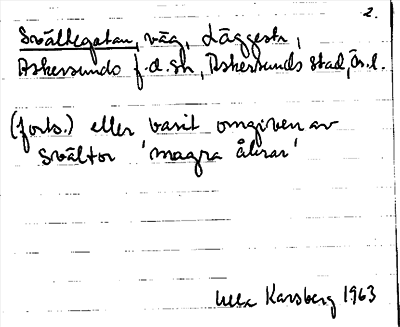 2.
Svältegatan, väg, Läggestr,
Askersunds f.d. sn, Askersunds stad, Ör.l.
(forts.) eller varit omgiven av
svältor 'magra åkrar'
Ulla Karsberg 1963